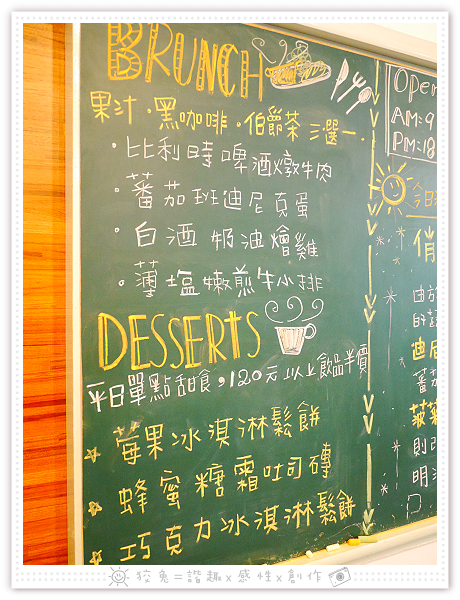 BRUNCH
果汁．黑咖啡．伯爵茶 三選一．
．比利時啤酒燉牛肉
．蕃茄班迪尼克蛋
．白酒奶油燴雞
．薄塩嫩煎牛小排
DESSERTS
平日單點甜食，120元以上飲品半價
莓果冰淇淋鬆餅
蜂蜜糖霜吐司磚
巧克力冰淇淋鬆餅
Open
AM:9
PM:18
今日
俏
由於
的
迪尼
蕃茄
菠菜
則
明
狡兔=諧趣x感性x創作